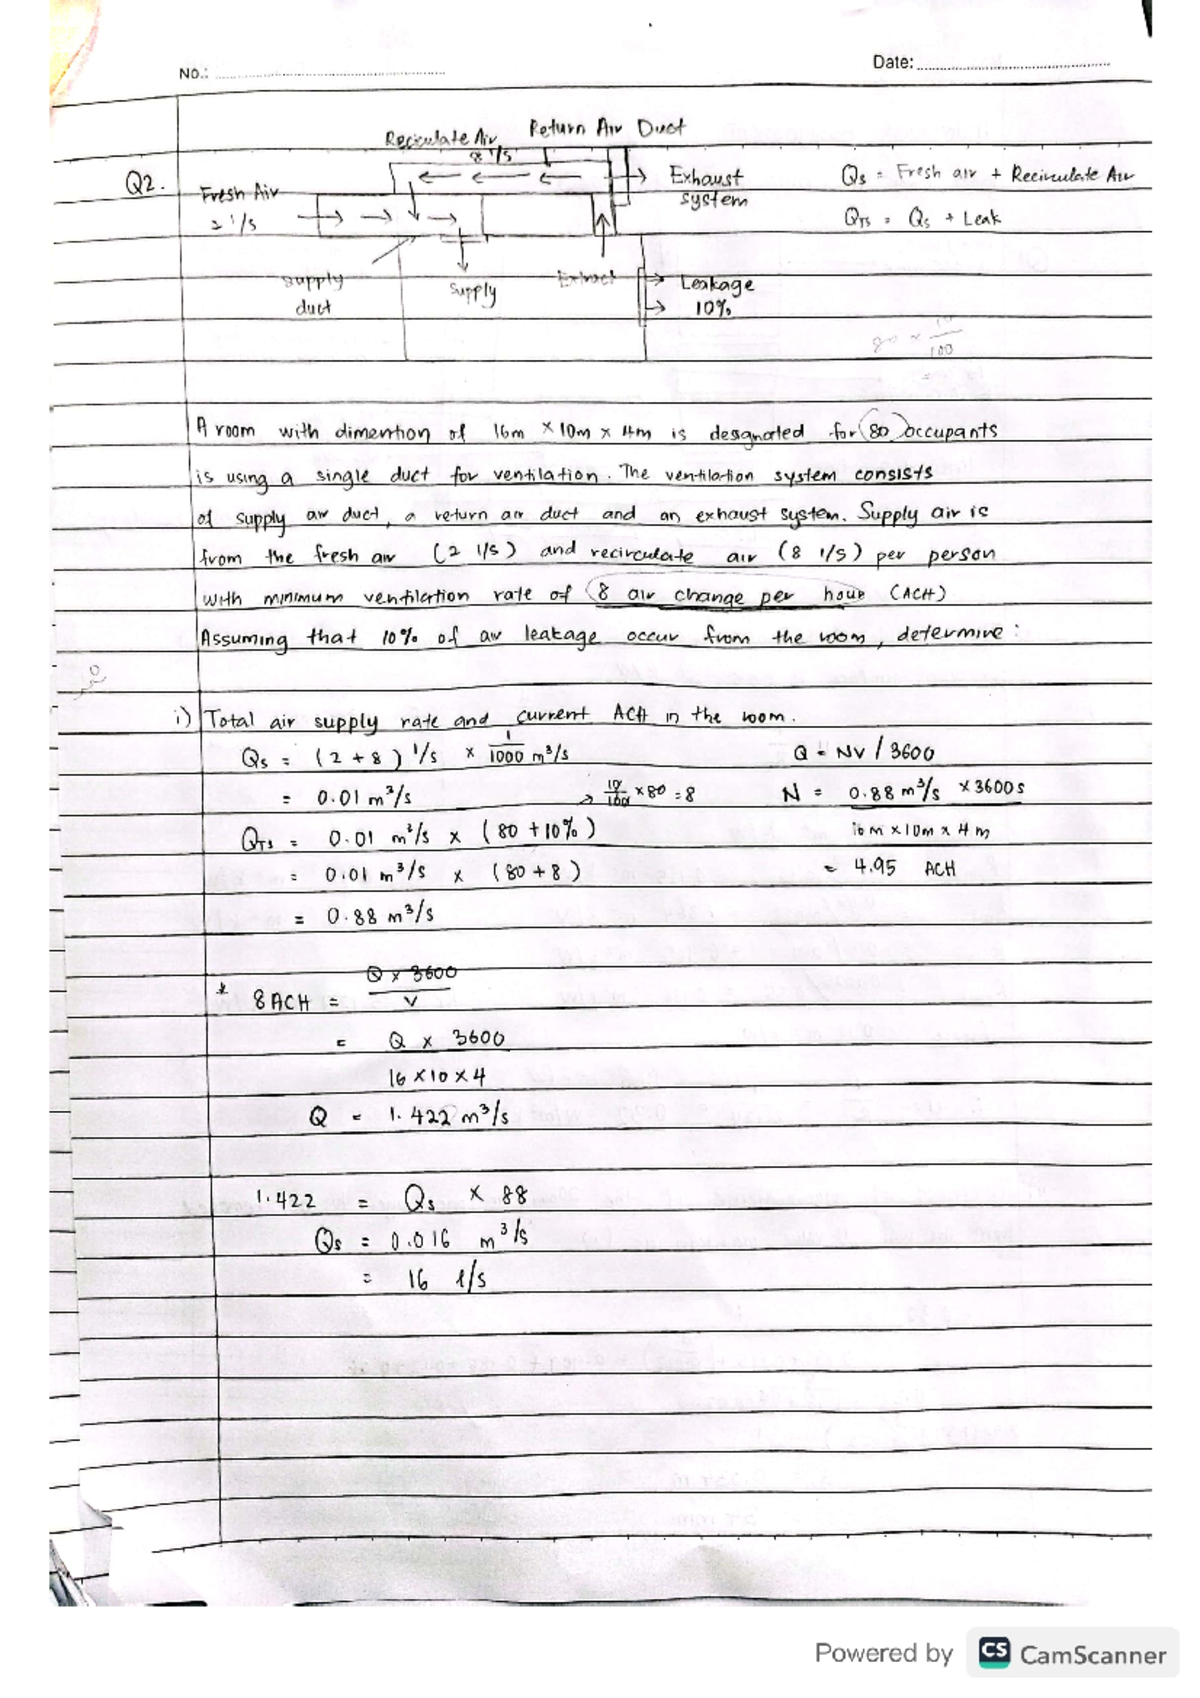 No.:
Date:
Q2.
Reciculate Air
Return Air Duct
8 l/s
Fresh Air
2 l/s
Exhaust
system
Qs = Fresh air + Recirculate Air
QTS = Qs + Leak
supply
duct
Supply
Extract
Leakage
10%
80 × 10/100
A room with dimention of 16m × 10m × 4m is designated for 80 occupants
is using a single duct for ventilation. The ventilation system consists
of supply air duct, a return air duct and an exhaust system. Supply air is
from the fresh air (2 l/s) and recirculate air (8 l/s) per person
with minimum ventilation rate of 8 air change per hour (ACH)
Assuming that 10% of air leakage occur from the room, determine :
i) Total air supply rate and current ACH in the room.
Qs = (2 + 8) l/s × 1/1000 m³/s
Q = NV / 3600
= 0.01 m³/s
→ 10/100 × 80 = 8
N = 0.88 m³/s × 3600 s
16 m × 10 m × 4 m
QTS = 0.01 m³/s × (80 + 10%)
= 0.01 m³/s × (80 + 8)
= 4.95 ACH
= 0.88 m³/s
* 8 ACH = Q × 3600
V
= Q × 3600
16 × 10 × 4
Q = 1.422 m³/s
1.422 = Qs × 88
Qs = 0.016 m³/s
= 16 l/s
Powered by CS CamScanner